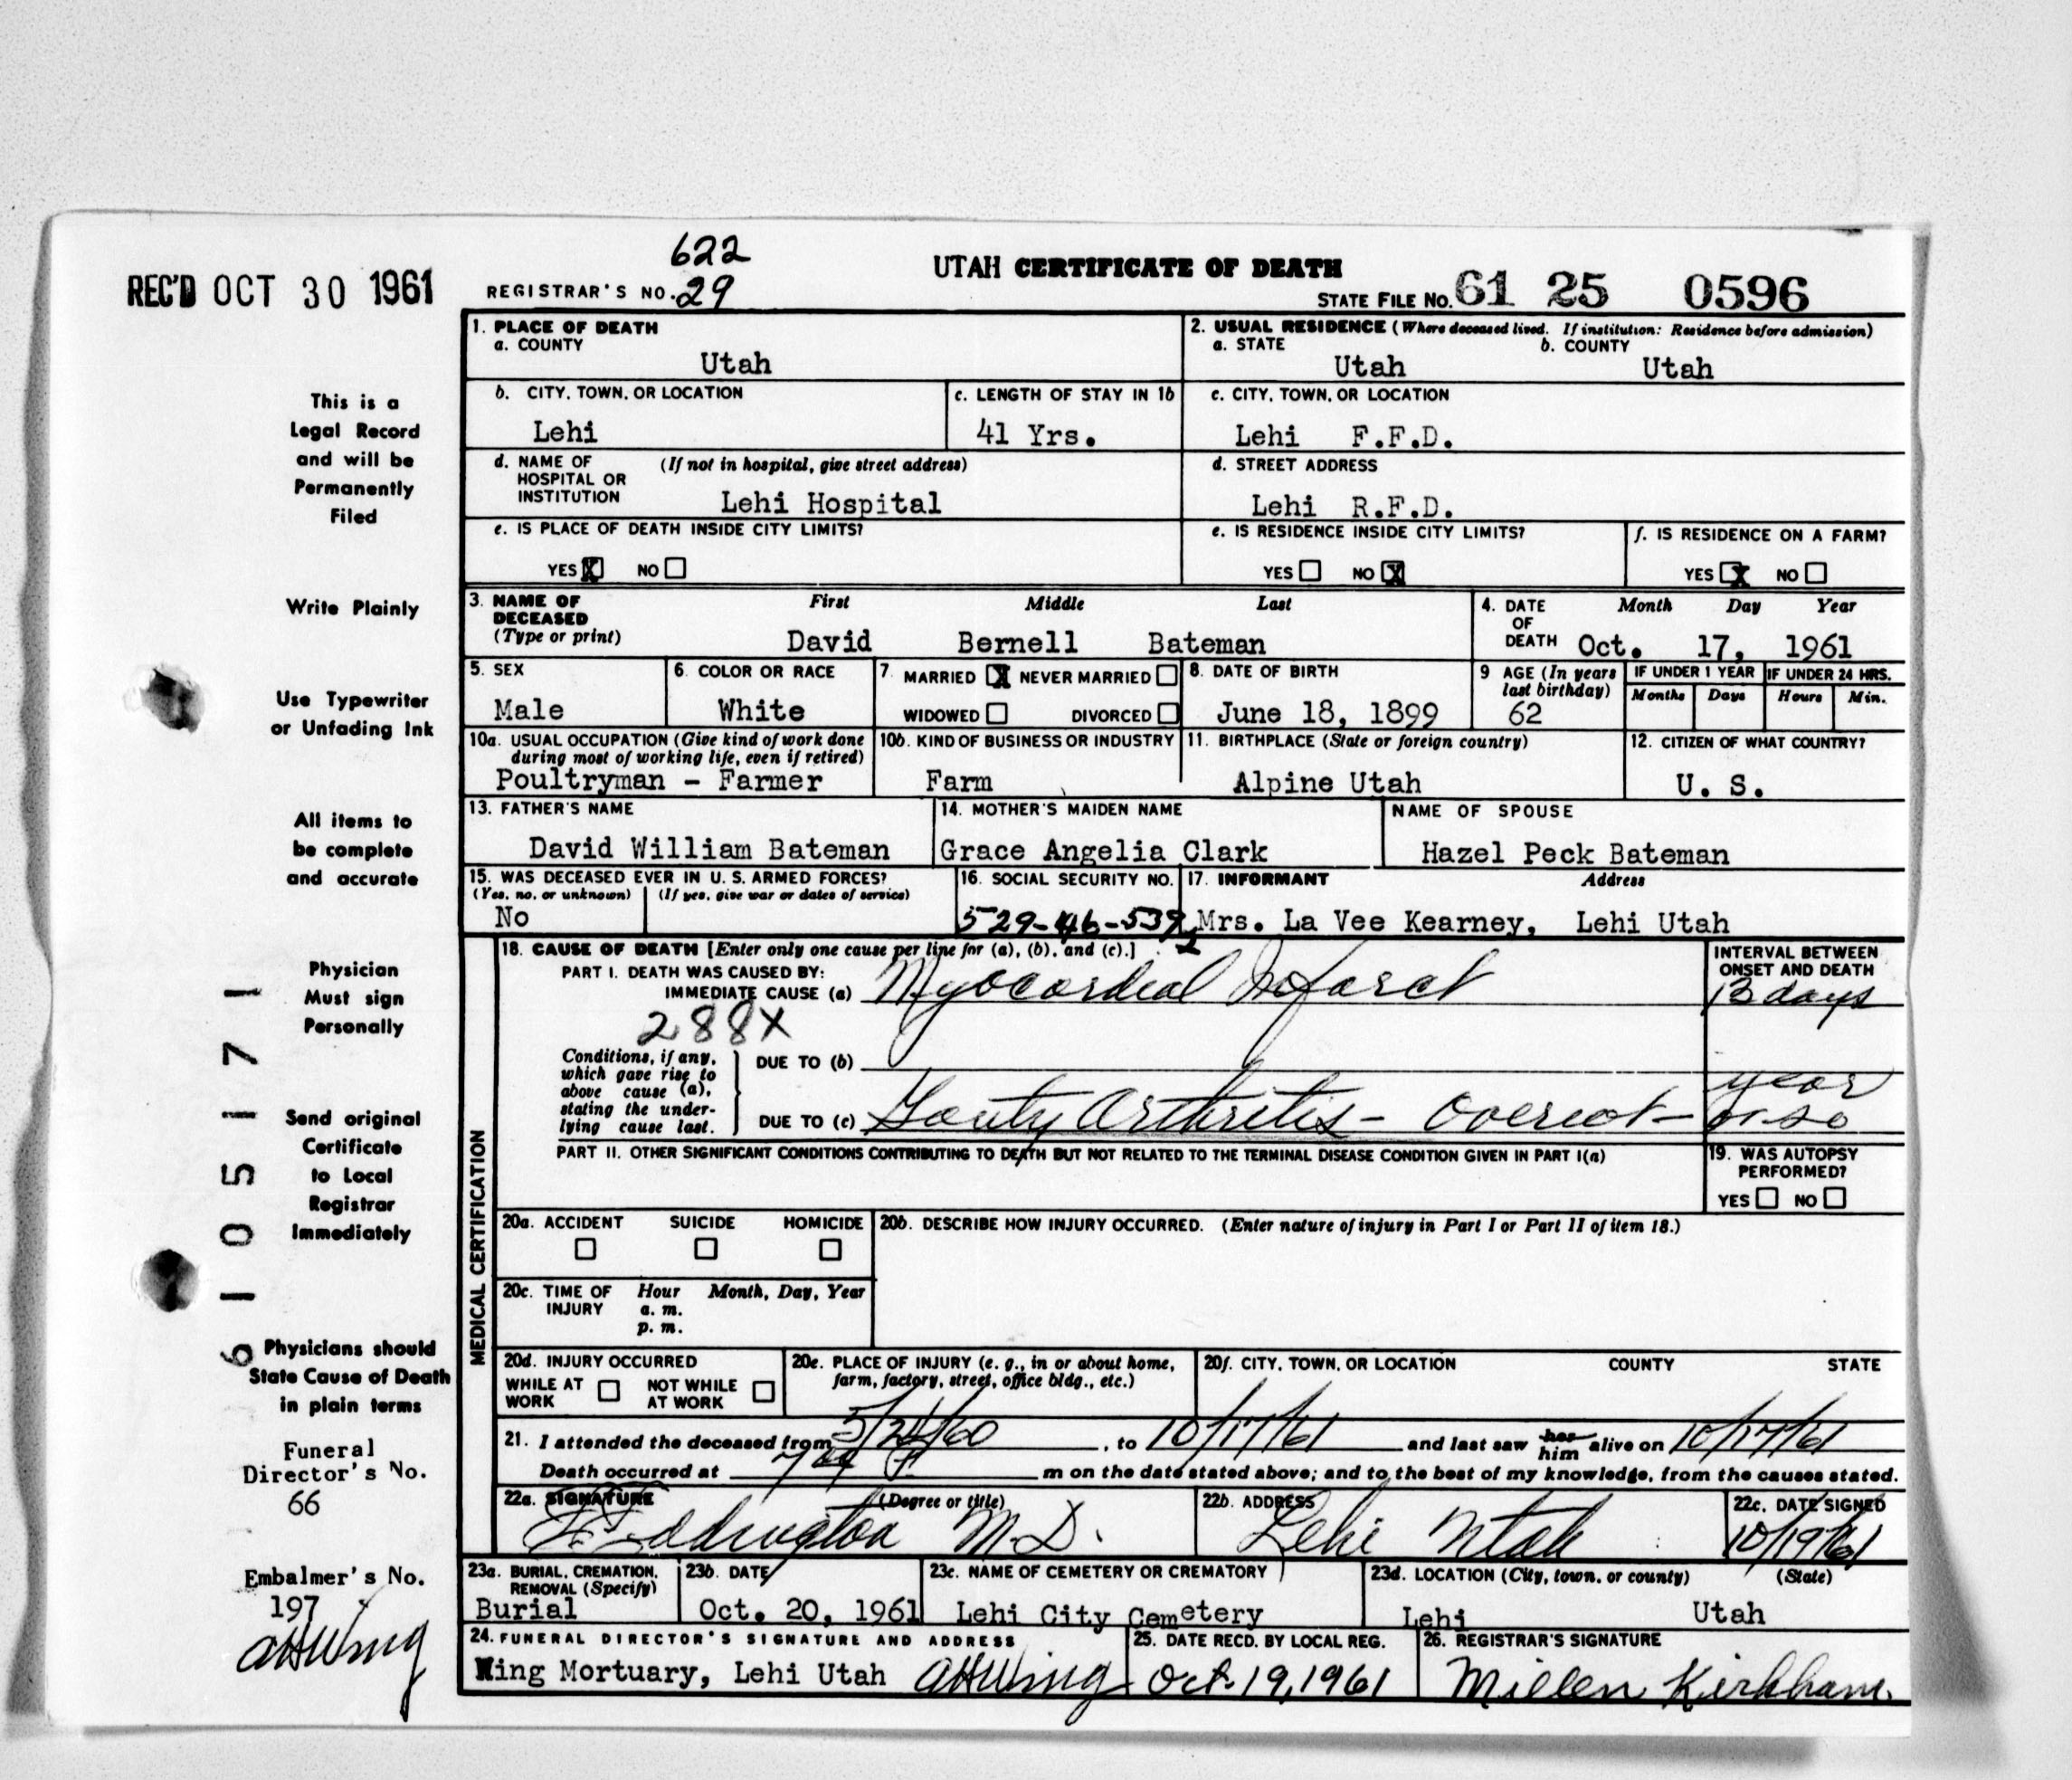 622
REC'D OCT 30 1961
REGISTRAR'S NO. 29
UTAH CERTIFICATE OF DEATH
STATE FILE NO. 61 25 0596
This is a
Legal Record
and will be
Permanently
Filed
Write Plainly
Use Typewriter
or Unfading Ink
All items to
be complete
and accurate
Physician
Must sign
Personally
Send original
Certificate
to Local
Registrar
Immediately
Physicians should
State Cause of Death
in plain terms
Funeral
Director's No.
66
Embalmer's No.
197
AHWing
6105171
1. PLACE OF DEATH
a. COUNTY
Utah
2. USUAL RESIDENCE (Where deceased lived. If institution: Residence before admission)
a. STATE b. COUNTY
Utah Utah
b. CITY, TOWN, OR LOCATION
Lehi
c. LENGTH OF STAY IN 1b
41 Yrs.
c. CITY, TOWN, OR LOCATION
Lehi F.F.D.
d. NAME OF (If not in hospital, give street address)
HOSPITAL OR
INSTITUTION Lehi Hospital
d. STREET ADDRESS
Lehi R.F.D.
e. IS PLACE OF DEATH INSIDE CITY LIMITS?
YES X NO
e. IS RESIDENCE INSIDE CITY LIMITS?
YES NO X
f. IS RESIDENCE ON A FARM?
YES X NO
3. NAME OF First Middle Last
DECEASED
(Type or print) David Bernell Bateman
4. DATE Month Day Year
OF
DEATH Oct. 17, 1961
5. SEX
Male
6. COLOR OR RACE
White
7. MARRIED X NEVER MARRIED
WIDOWED DIVORCED
8. DATE OF BIRTH
June 18, 1899
9 AGE (In years
last birthday)
62
IF UNDER 1 YEAR
Months Days
IF UNDER 24 HRS.
Hours Min.
10a. USUAL OCCUPATION (Give kind of work done
during most of working life, even if retired)
Poultryman - Farmer
10b. KIND OF BUSINESS OR INDUSTRY
Farm
11. BIRTHPLACE (State or foreign country)
Alpine Utah
12. CITIZEN OF WHAT COUNTRY?
U. S.
13. FATHER'S NAME
David William Bateman
14. MOTHER'S MAIDEN NAME
Grace Angelia Clark
NAME OF SPOUSE
Hazel Peck Bateman
15. WAS DECEASED EVER IN U. S. ARMED FORCES?
(Yes, no, or unknown) (If yes, give war or dates of service)
No
16. SOCIAL SECURITY NO.
529-46-539
2
17. INFORMANT Address
Mrs. La Vee Kearney, Lehi Utah
MEDICAL CERTIFICATION
18. CAUSE OF DEATH [Enter only one cause per line for (a), (b), and (c).]
PART I. DEATH WAS CAUSED BY:
IMMEDIATE CAUSE (a) Myocardial Infarct
288X
INTERVAL BETWEEN
ONSET AND DEATH
13 days
Conditions, if any,
which gave rise to
above cause (a),
stating the under-
lying cause last.
DUE TO (b)
DUE TO (c) Gouty Arthritis -
year
or so
PART II. OTHER SIGNIFICANT CONDITIONS CONTRIBUTING TO DEATH BUT NOT RELATED TO THE TERMINAL DISEASE CONDITION GIVEN IN PART I(a)
19. WAS AUTOPSY
PERFORMED?
YES NO
20a. ACCIDENT SUICIDE HOMICIDE
20b. DESCRIBE HOW INJURY OCCURRED. (Enter nature of injury in Part I or Part II of item 18.)
20c. TIME OF Hour Month, Day, Year
INJURY a. m.
p. m.
20d. INJURY OCCURRED
WHILE AT NOT WHILE
WORK AT WORK
20e. PLACE OF INJURY (e. g., in or about home,
farm, factory, street, office bldg., etc.)
20f. CITY, TOWN, OR LOCATION COUNTY STATE
21. I attended the deceased from 5/24/60, to 10/17/61 and last saw her him alive on 10/17/61
Death occurred at m on the date stated above; and to the best of my knowledge, from the causes stated.
22a. SIGNATURE (Degree or title)
Eddington M.D.
22b. ADDRESS
Lehi Utah
22c. DATE SIGNED
10/19/61
23a. BURIAL, CREMATION,
REMOVAL (Specify)
Burial
23b. DATE
Oct. 20, 1961
23c. NAME OF CEMETERY OR CREMATORY
Lehi City Cemetery
23d. LOCATION (City, town, or county) (State)
Lehi Utah
24. FUNERAL DIRECTOR'S SIGNATURE AND ADDRESS
Wing Mortuary, Lehi Utah AHWing
25. DATE RECD. BY LOCAL REG.
Oct. 19, 1961
26. REGISTRAR'S SIGNATURE
Millen Kirkham